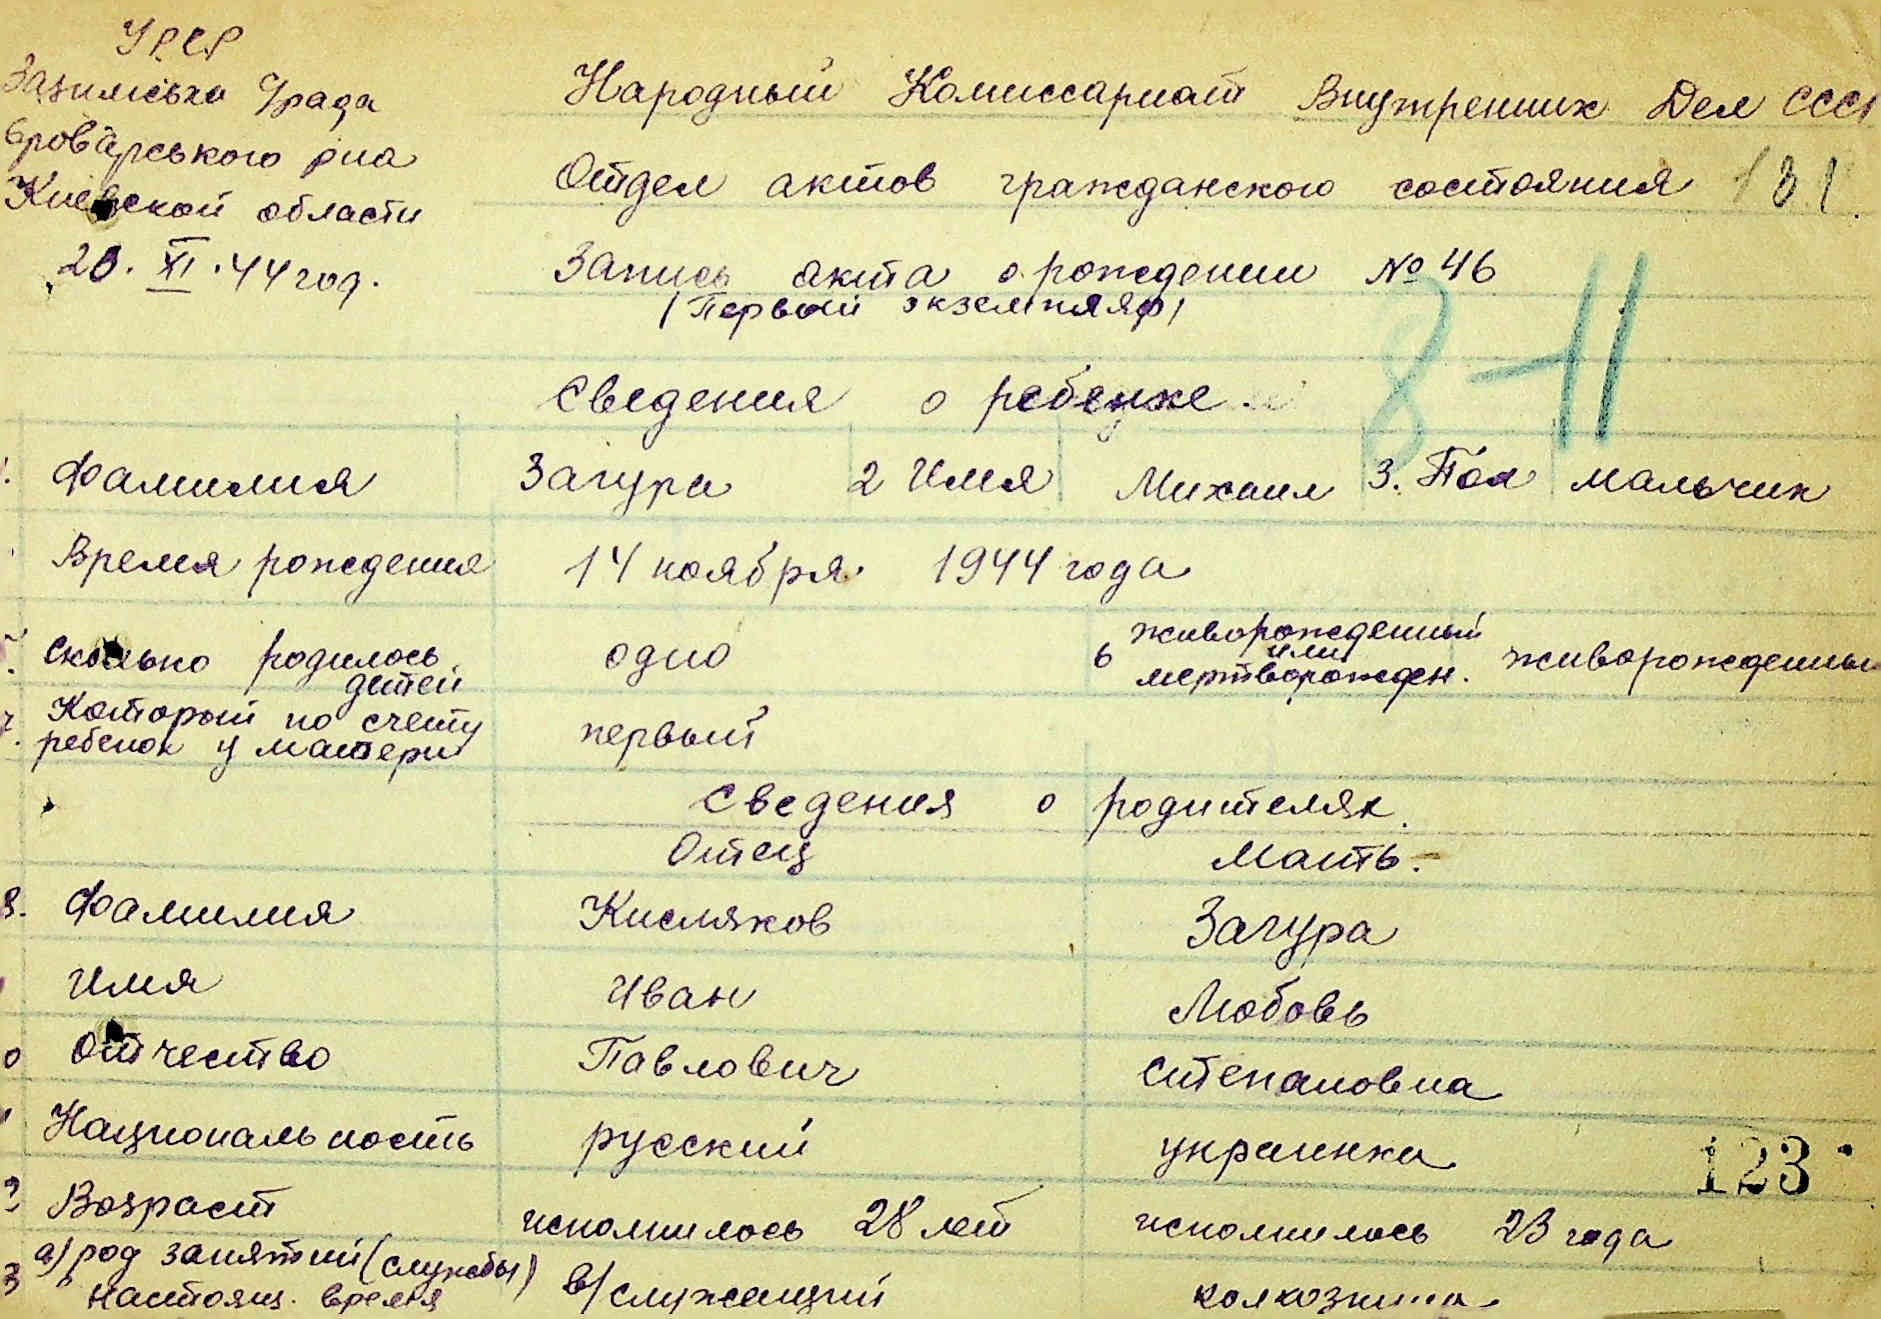 УРСР
Зазимська С/рада
Броварського р-на
Киевской области
20. XI. 44 год.
Народный Комиссариат Внутренних Дел СССР
Отдел актов гражданского состояния 131.
Запись акта о рождении № 46
(Первый экземпляр)
8-11
Сведения о ребенке.
1. Фамилия Загура 2 Имя Михаил 3. Пол мальчик
Время рождения 14 ноября 1944 года
5. Сколько родилось детей одно 6 живорожденный или мертворожден. живорожденный
7. Который по счету ребенок у матери первый
Сведения о родителях.
Отец Мать.
8. Фамилия Кисляков Загура
Имя Иван Любовь
0 Отчество Павлович Степановна
Национальность русский украинка
123
2 Возраст исполнилось 28 лет исполнилось 23 года
3 а) род занятий (службы) в/служащий колхозница
настоящ. время